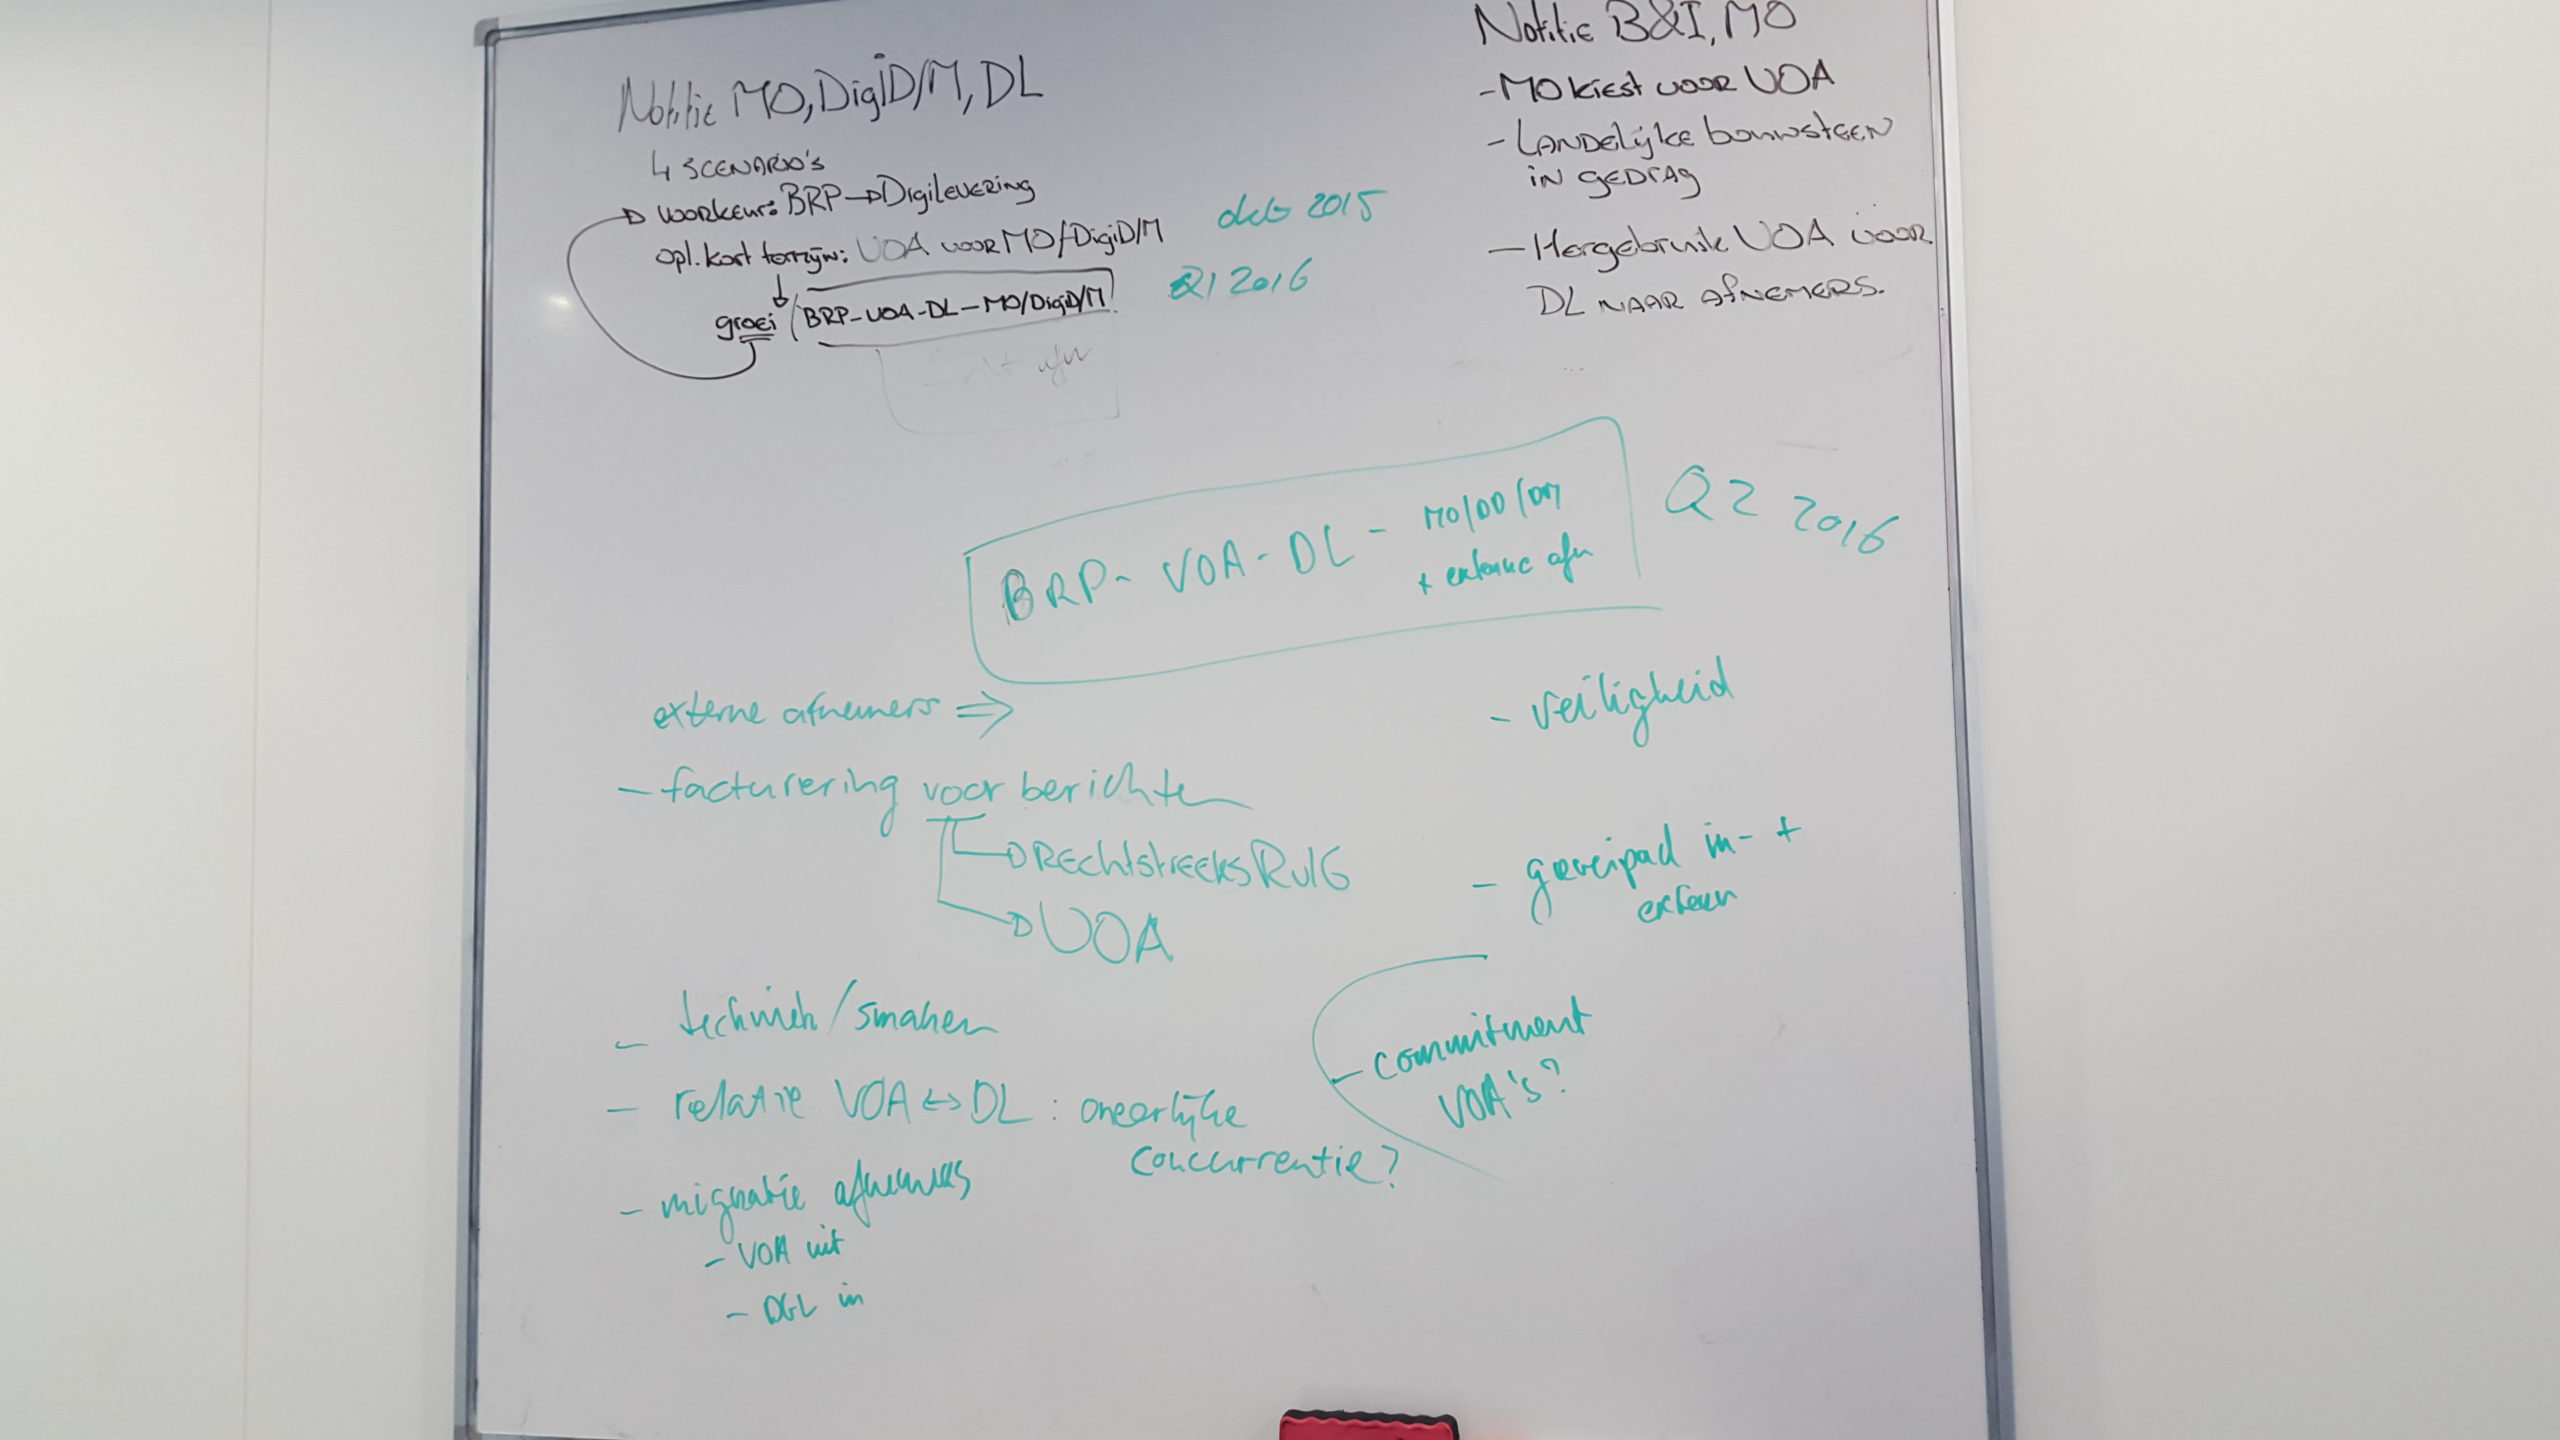 Notitie MO, DigiD/M, DL
4 SCENARIO'S
voorkeur: BRP → Digilevering
opl. kort termijn: VOA voor MO/DigiD/M
dec 2015
groei / BRP-VOA-DL-MO/DigiD/M
Q1 2016
afn
Notitie B&I, MO
- MO kiest voor VOA
- LANDELijke bouwsteen
in gedrag
- Hergebruik VOA voor
DL naar afnemers.
BRP - VOA - DL - MO/DD/DM
+ externe afn
Q2 2016
externe afnemers ⇒
- facturering voor berichten
→ Rechtstreeks RvIG
→ VOA
- techniek/smaken
- relatie VOA ↔ DL : oneerlijke
concurrentie?
- migratie afnemers
- VOA uit
- DGL in
- veiligheid
- groeipad in- +
extern
- commitment
VOA's?